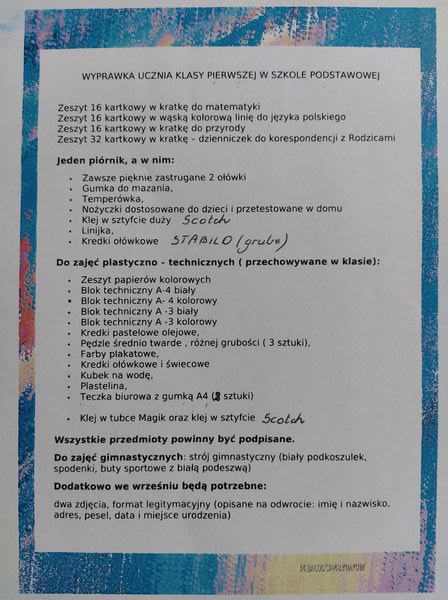 WYPRAWKA UCZNIA KLASY PIERWSZEJ W SZKOLE PODSTAWOWEJ
Zeszyt 16 kartkowy w kratkę do matematyki
Zeszyt 16 kartkowy w wąską kolorową linię do języka polskiego
Zeszyt 16 kartkowy w kratkę do przyrody
Zeszyt 32 kartkowy w kratkę – dzienniczek do korespondencji z Rodzicami
Jeden piórnik, a w nim:
• Zawsze pięknie zastrugane 2 ołówki
• Gumka do mazania,
• Temperówka,
• Nożyczki dostosowane do dzieci i przetestowane w domu
• Klej w sztyfcie duży Scotch
• Linijka,
• Kredki ołówkowe STABILO (grube)
Do zajęć plastyczno – technicznych ( przechowywane w klasie):
• Zeszyt papierów kolorowych
• Blok techniczny A-4 biały
• Blok techniczny A- 4 kolorowy
• Blok techniczny A -3 biały
• Blok techniczny A -3 kolorowy
• Kredki pastelowe olejowe,
• Pędzle średnio twarde , różnej grubości ( 3 sztuki),
• Farby plakatowe,
• Kredki ołówkowe i świecowe
• Kubek na wodę,
• Plastelina,
• Teczka biurowa z gumką A4 ( sztuki)
• Klej w tubce Magik oraz klej w sztyfcie Scotch
Wszystkie przedmioty powinny być podpisane.
Do zajęć gimnastycznych: strój gimnastyczny (biały podkoszulek,
spodenki, buty sportowe z białą podeszwą)
Dodatkowo we wrześniu będą potrzebne:
dwa zdjęcia, format legitymacyjny (opisane na odwrocie: imię i nazwisko,
adres, pesel, data i miejsce urodzenia)